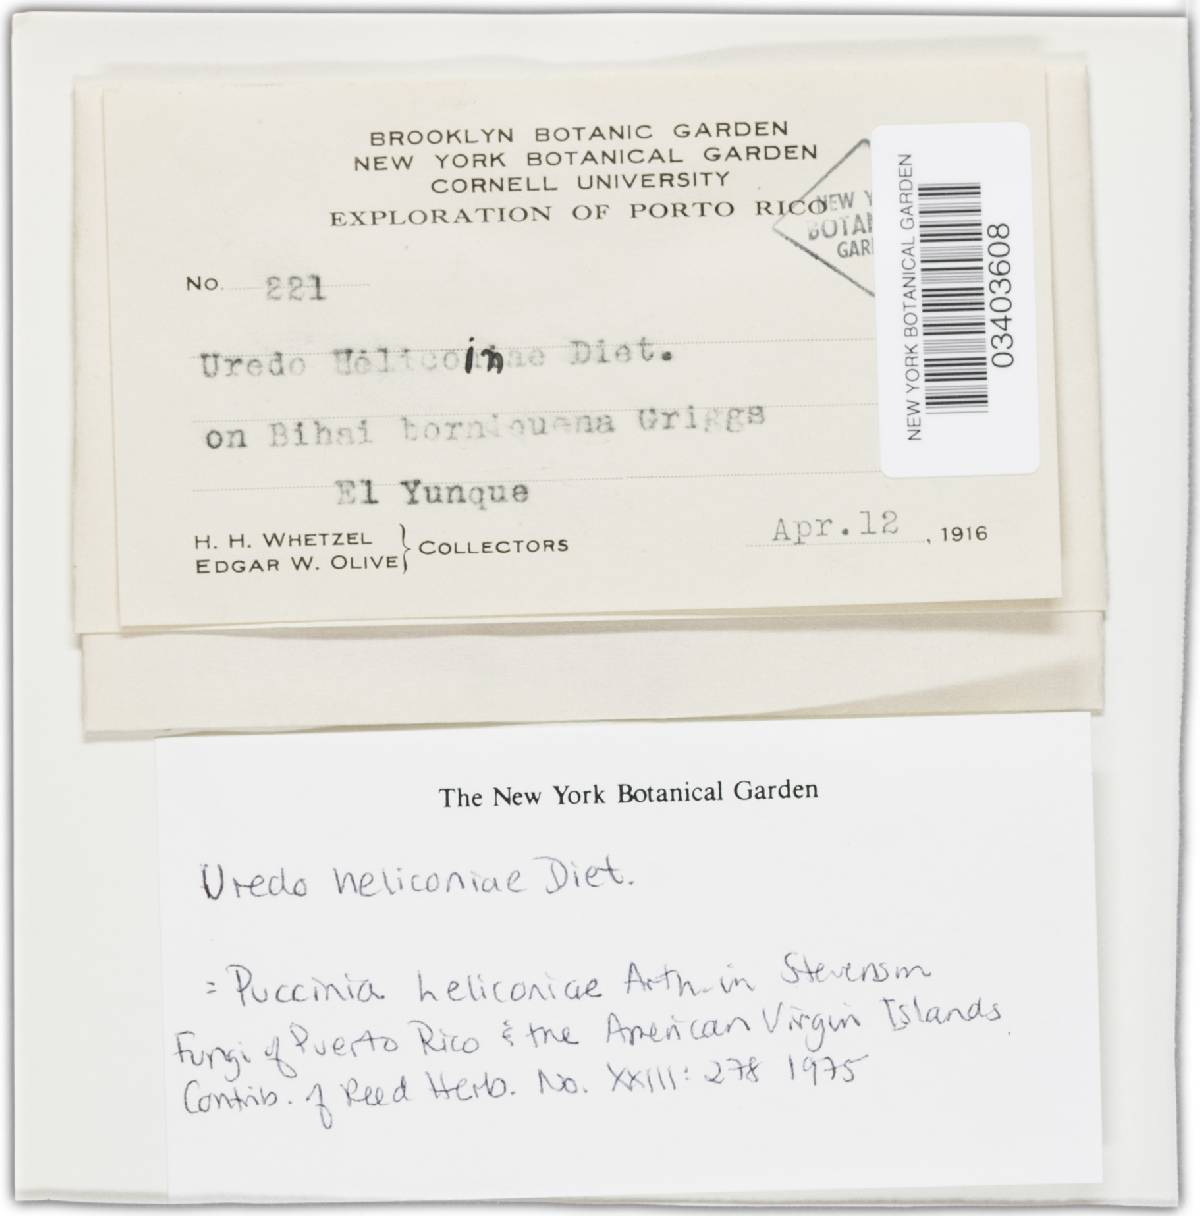 BROOKLYN BOTANIC GARDEN
NEW YORK BOTANICAL GARDEN
CORNELL UNIVERSITY
EXPLORATION OF PORTO RICO
NEW Y
BOTA
GAR
NEW YORK BOTANICAL GARDEN
03403608
No. 221
Uredo Heliconiae Diet.
on Bihai borniquena Griggs
El Yunque
H. H. WHETZEL
EDGAR W. OLIVE } COLLECTORS
Apr.12, 1916
The New York Botanical Garden
Uredo heliconiae Diet.
= Puccinia heliconiae Arth. in Stevenson
Fungi of Puerto Rico & the American Virgin Islands.
Contrib. of Reed Herb. No. XXIII: 278 1975